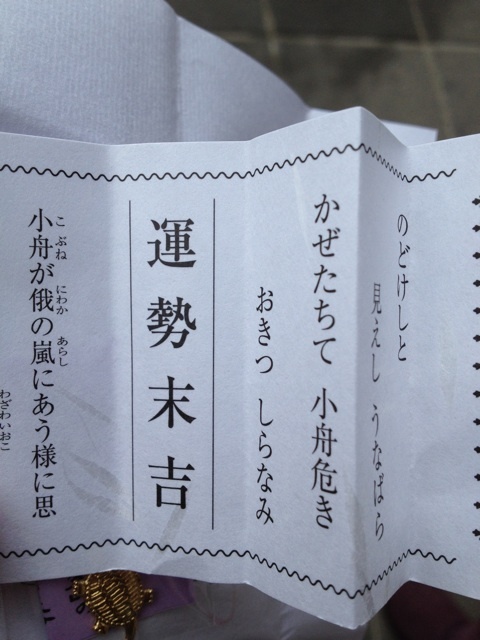 のどけしと
見えし うなばら
かぜたちて 小舟危き
おきつ しらなみ
運勢末吉
小舟が俄の嵐にあう様に思
こぶね にわか あらし
わざわいおこ